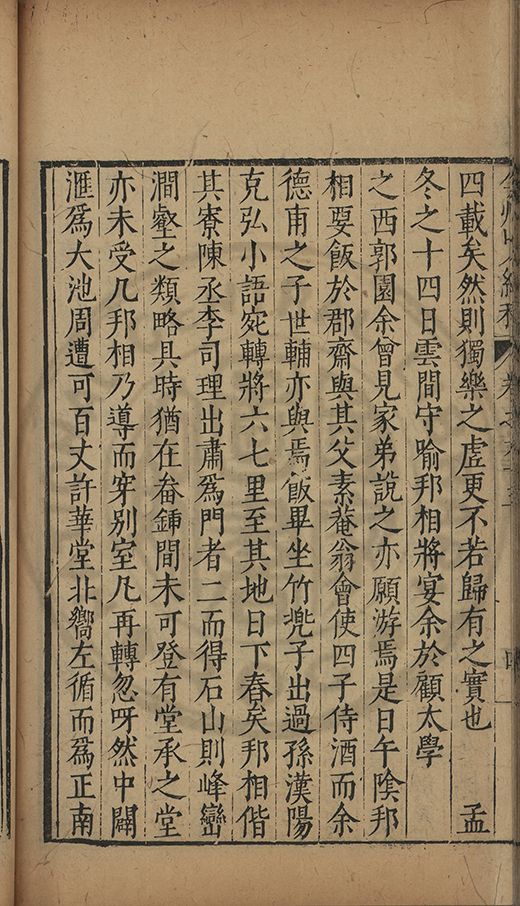 四載矣然則獨樂之虛更不若歸有之實也　孟
冬之十四日雲間守喻邦相將宴余於顧太學
之西郭園余曾見家弟說之亦願游焉是日午隂邦
相要飯於郡齋與其父素菴翁會使四子侍酒而余
德甫之子世輔亦與焉飯畢坐竹兠子出過孫漢陽
克弘小語宛轉將六七里至其地日下舂矣邦相偕
其寮陳丞李司理出肅爲門者二而得石山則峰巒
澗壑之類略具時猶在畚鍤間未可登有堂承之堂
亦未受几邦相乃導而穿別室凡再轉忽呀然中闢
滙爲大池周遭可百丈許華堂北嚮左循而爲正南